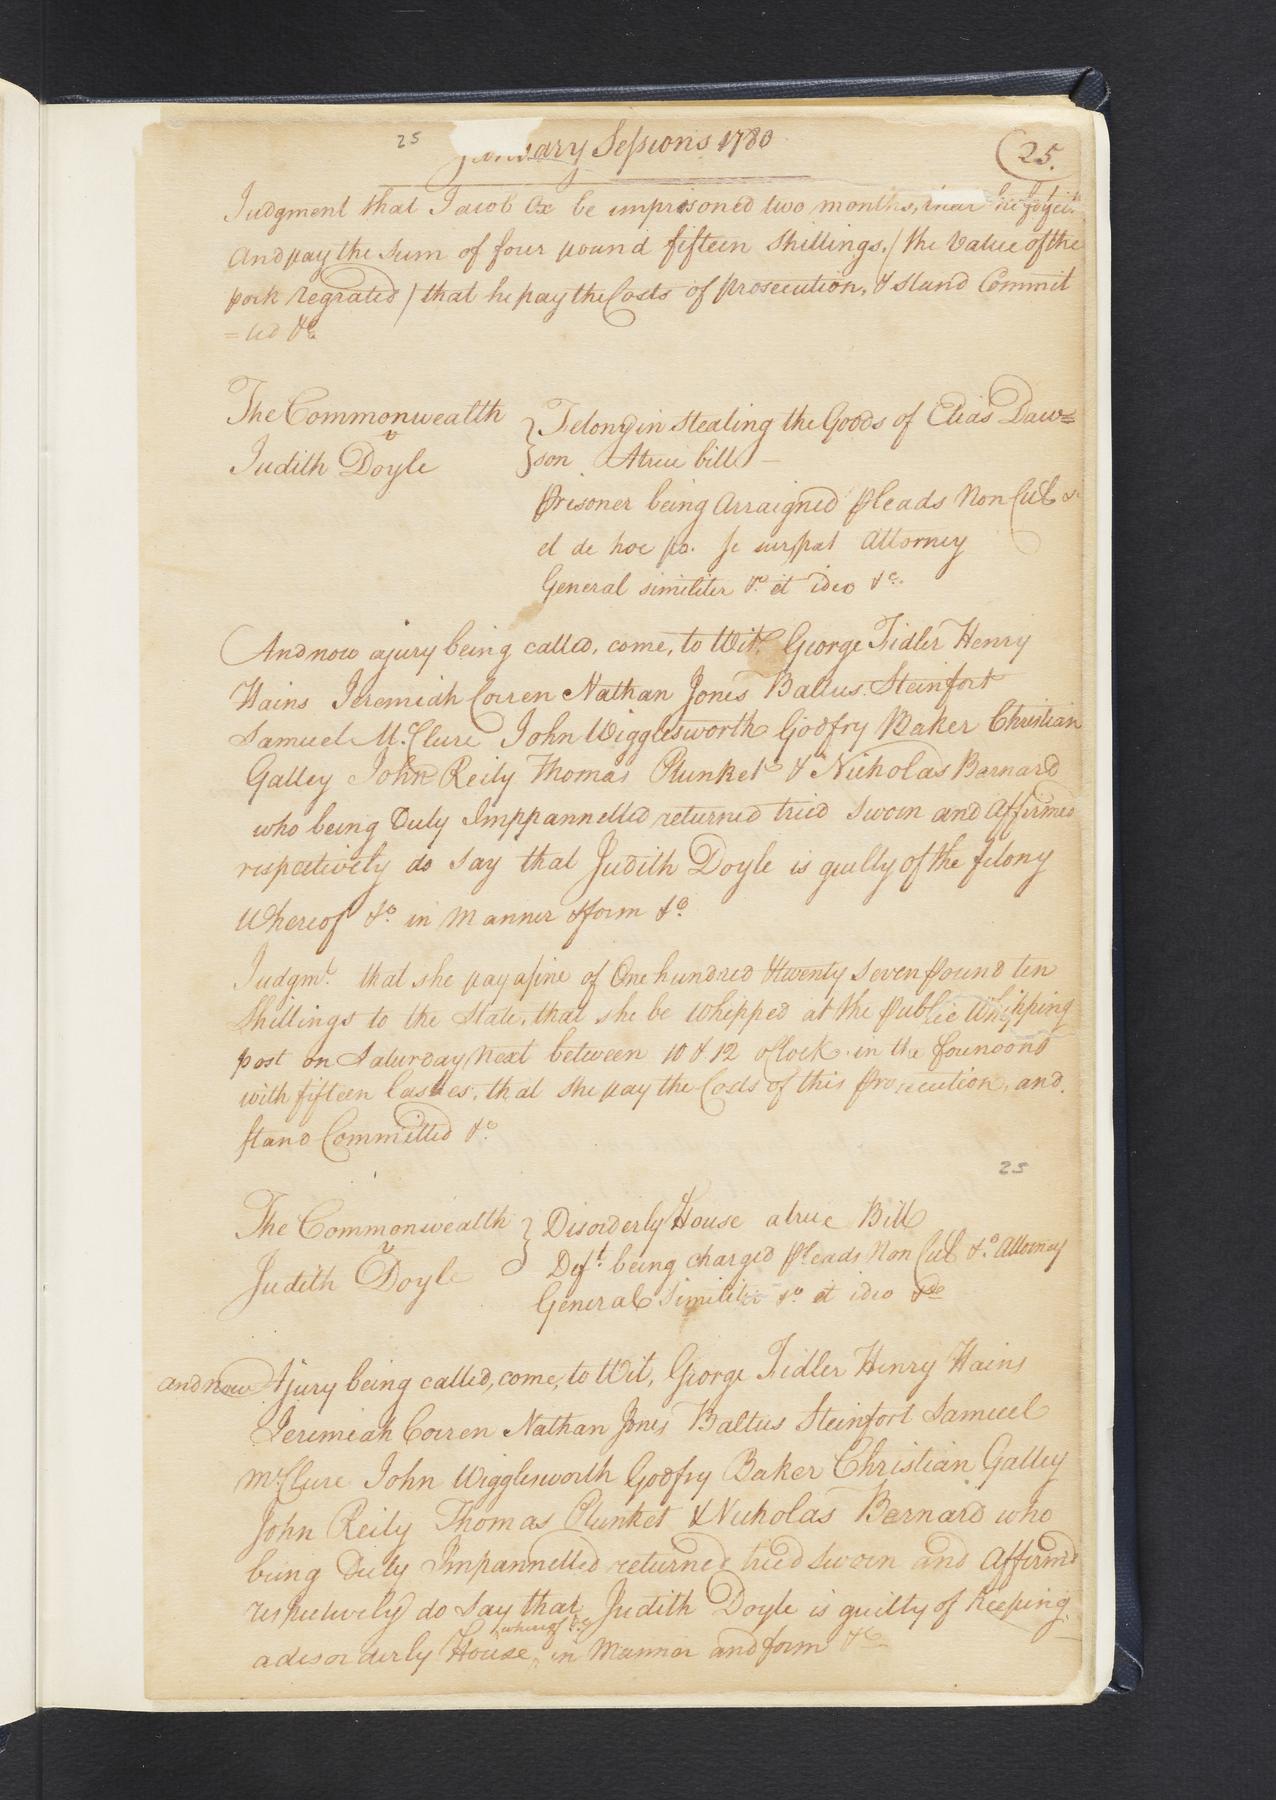 25
January Sessions 1780
25.
Judgment that Jacob Ox be imprisoned two months, that he forfeit
And pay the Sum of four pound fifteen Shillings, (the Value of the
pork regrated) that he pay the Costs of Prosecution, & stand Commit
=ted &c
The Commonwealth
v
Judith Doyle
Felony in Stealing the Goods of Elias Daw=
son A true bill —
Prisoner being Arraigned Pleads Non Cul &c
et de hoc po. se sup. pat Attorney
General similiter &c et ideo &c.
And now a jury being called, come, to Wit, George Fidler Henry
Hains Jeremiah Corren Nathan Jones Baltus Steinfort
Samuel McClure John Wigglesworth Godfry Baker Christian
Galley John Reily Thomas Plunket & Nicholas Barnard
who being Duly Imppannelled returned tried Sworn and Affirmed
respectively do say that Judith Doyle is guilty of the felony
Whereof &c in manner & form &c
Judgmt. that she pay a fine of One hundred & twenty seven pound ten
Shillings to the State, that she be Whipped at the Public Whipping
post on Saturday Next between 10 & 12 oClock in the Forenoon
with fifteen Lashes, that she pay the Costs of this Prosecution, and
stand Committed &c
25
The Commonwealth
v
Judith Doyle
Disorderly House a true Bill
Deft. being charged Pleads Non Cul &c Attorney
General Similiter &c et ideo &c
and now A jury being called, come, to Wit, George Fidler Henry Hains
Jeremiah Corren Nathan Jones Baltus Steinfort Samuel
McClure John Wigglesworth Godfry Baker Christian Galley
John Reily Thomas Plunket & Nicholas Bernard who
being Duly Impannelled returned tried Sworn and Affirmd
respectively do say that Judith Doyle is guilty of Keeping
whereof &c
a disorderly House in Manner and form &c